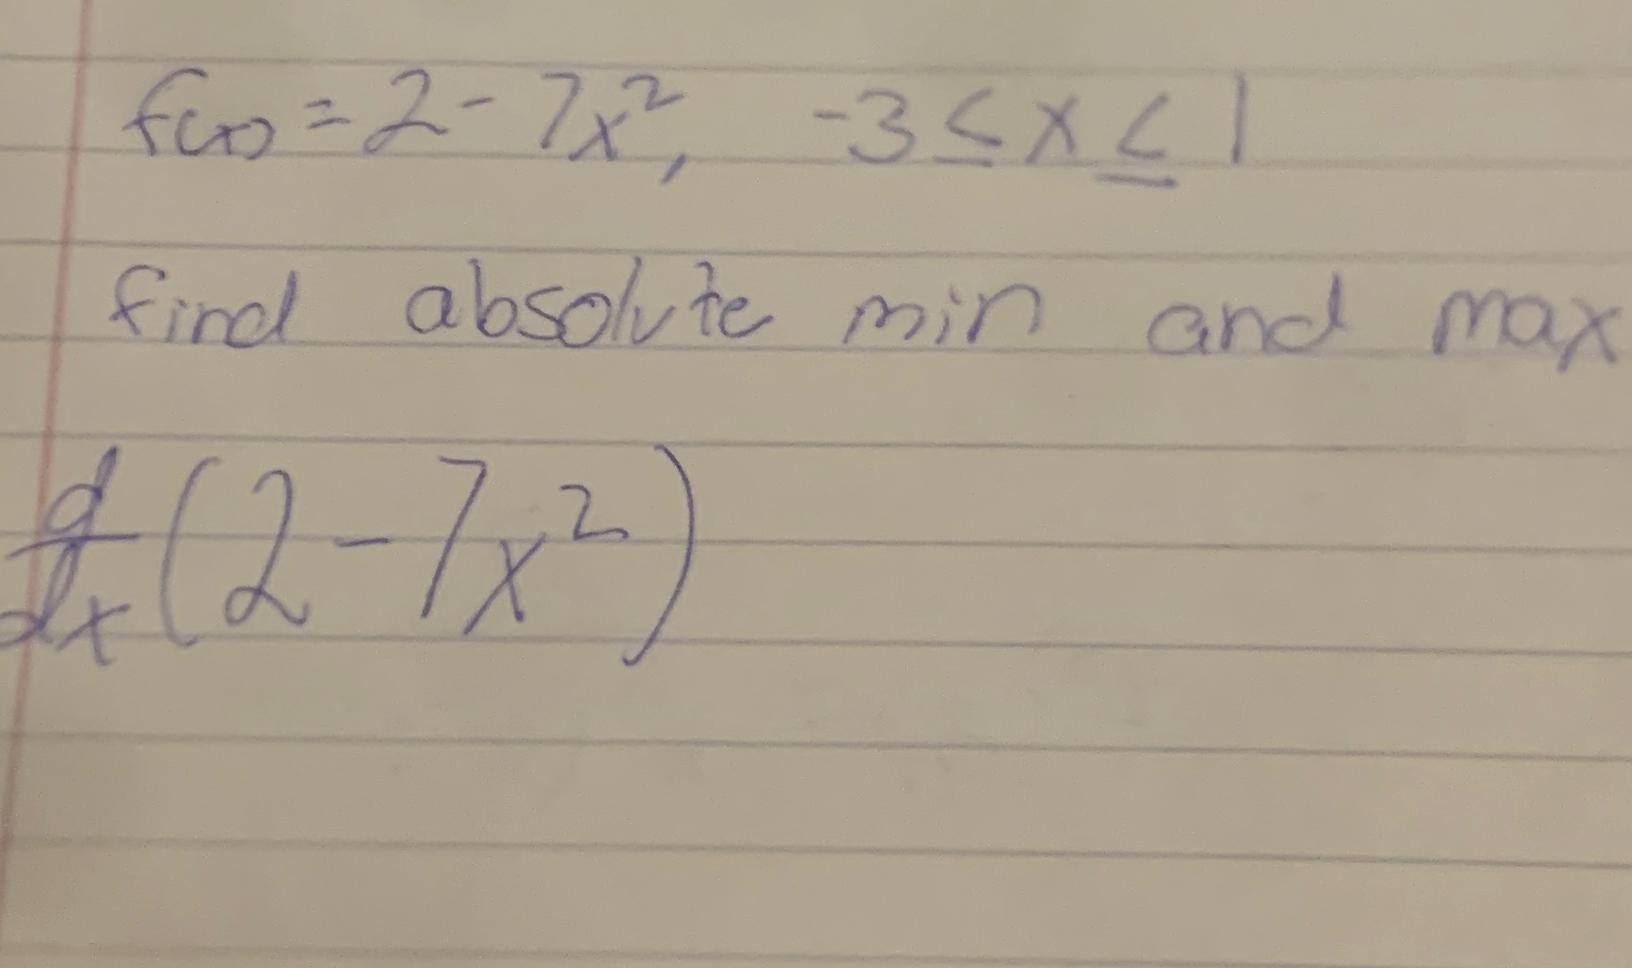 f(x) = 2 - 7x², -3 ≤ x ≤ 1
find absolute min and max
d/dx (2 - 7x²)